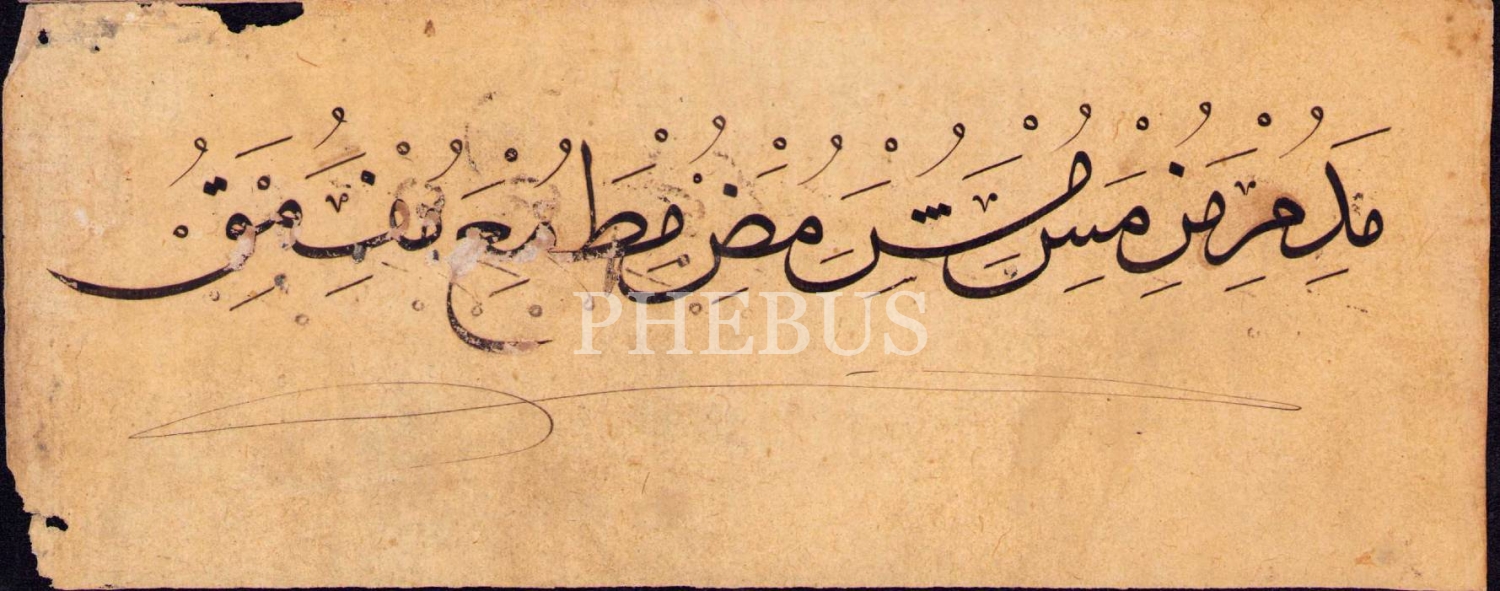 مد مر مز مس مش مض مط مع مف مق
PHEBUS